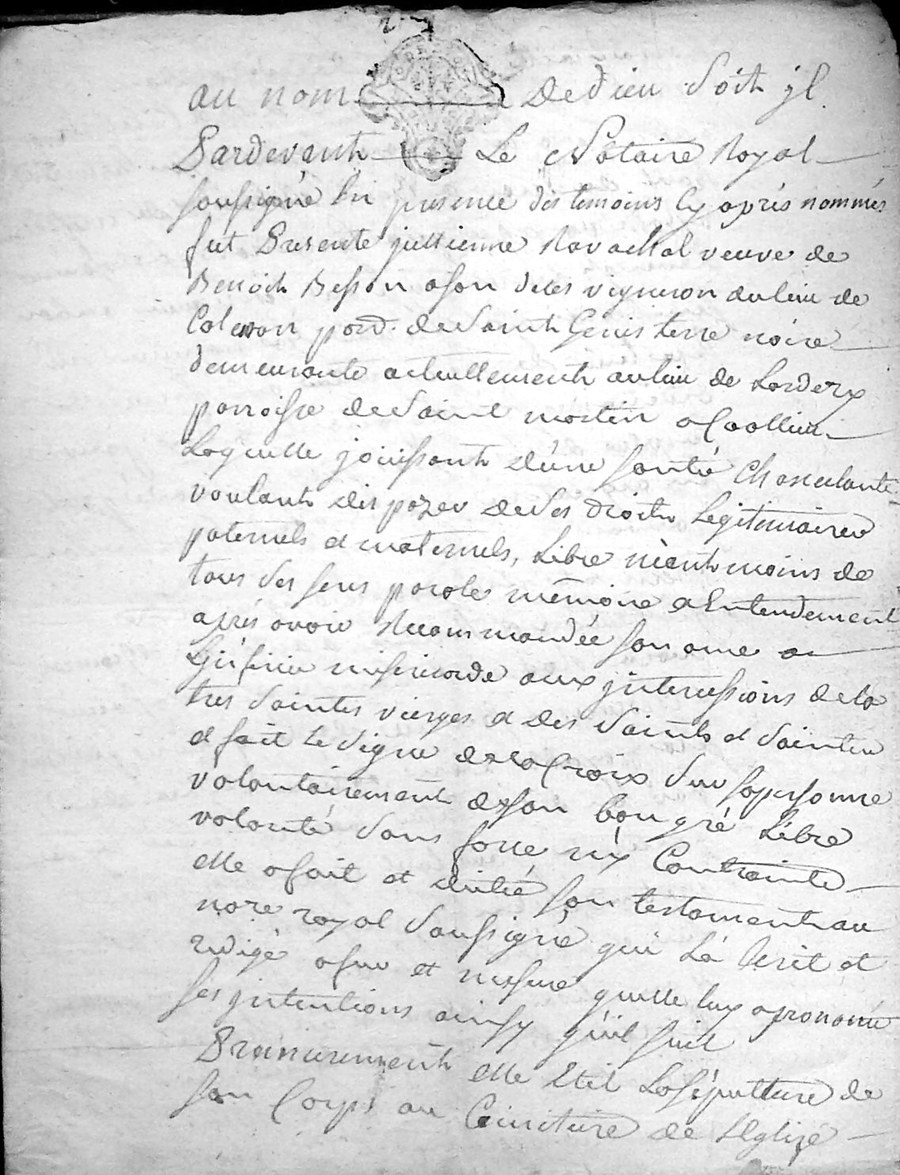 au nom de dieu soit jl
Pardevant Le Notaire Royal
soussigné En presence des temoins Cy aprés nommés
fut Presente jullienne Ravachol veuve de
Benoit Besson a son deces vigneron au lieu de
parr. de Saint Genis terre noire
demeurante actuellement au lieu de
parroisse de Saint martin
Laquelle jouissant d'une santé Chancelante
voulant disposer de ses droits Legitimaires
paternels et maternels, Libre neantmoins de
tous ses sens parole mémoire et Entendement
aprés avoir Recommandée son ame a
L'jnfinie misericorde aux jntercessions de la
tres Sainte vierge et des Saints et Saintes
et fait Le Signe de la Croix sur sa personne
volontairement de son bon gré Libre
volonté sans force ny Contrainte
elle a fait et dicté son testament au
nore royal soussigné qui L'a Ecrit et
redigé a fur et mesure quelle luy a prononcé
ses jntentions ainsy qu'il suit
Premierement elle Elit La Sepulture de
son Corps au Cimitiere de L'Eglize